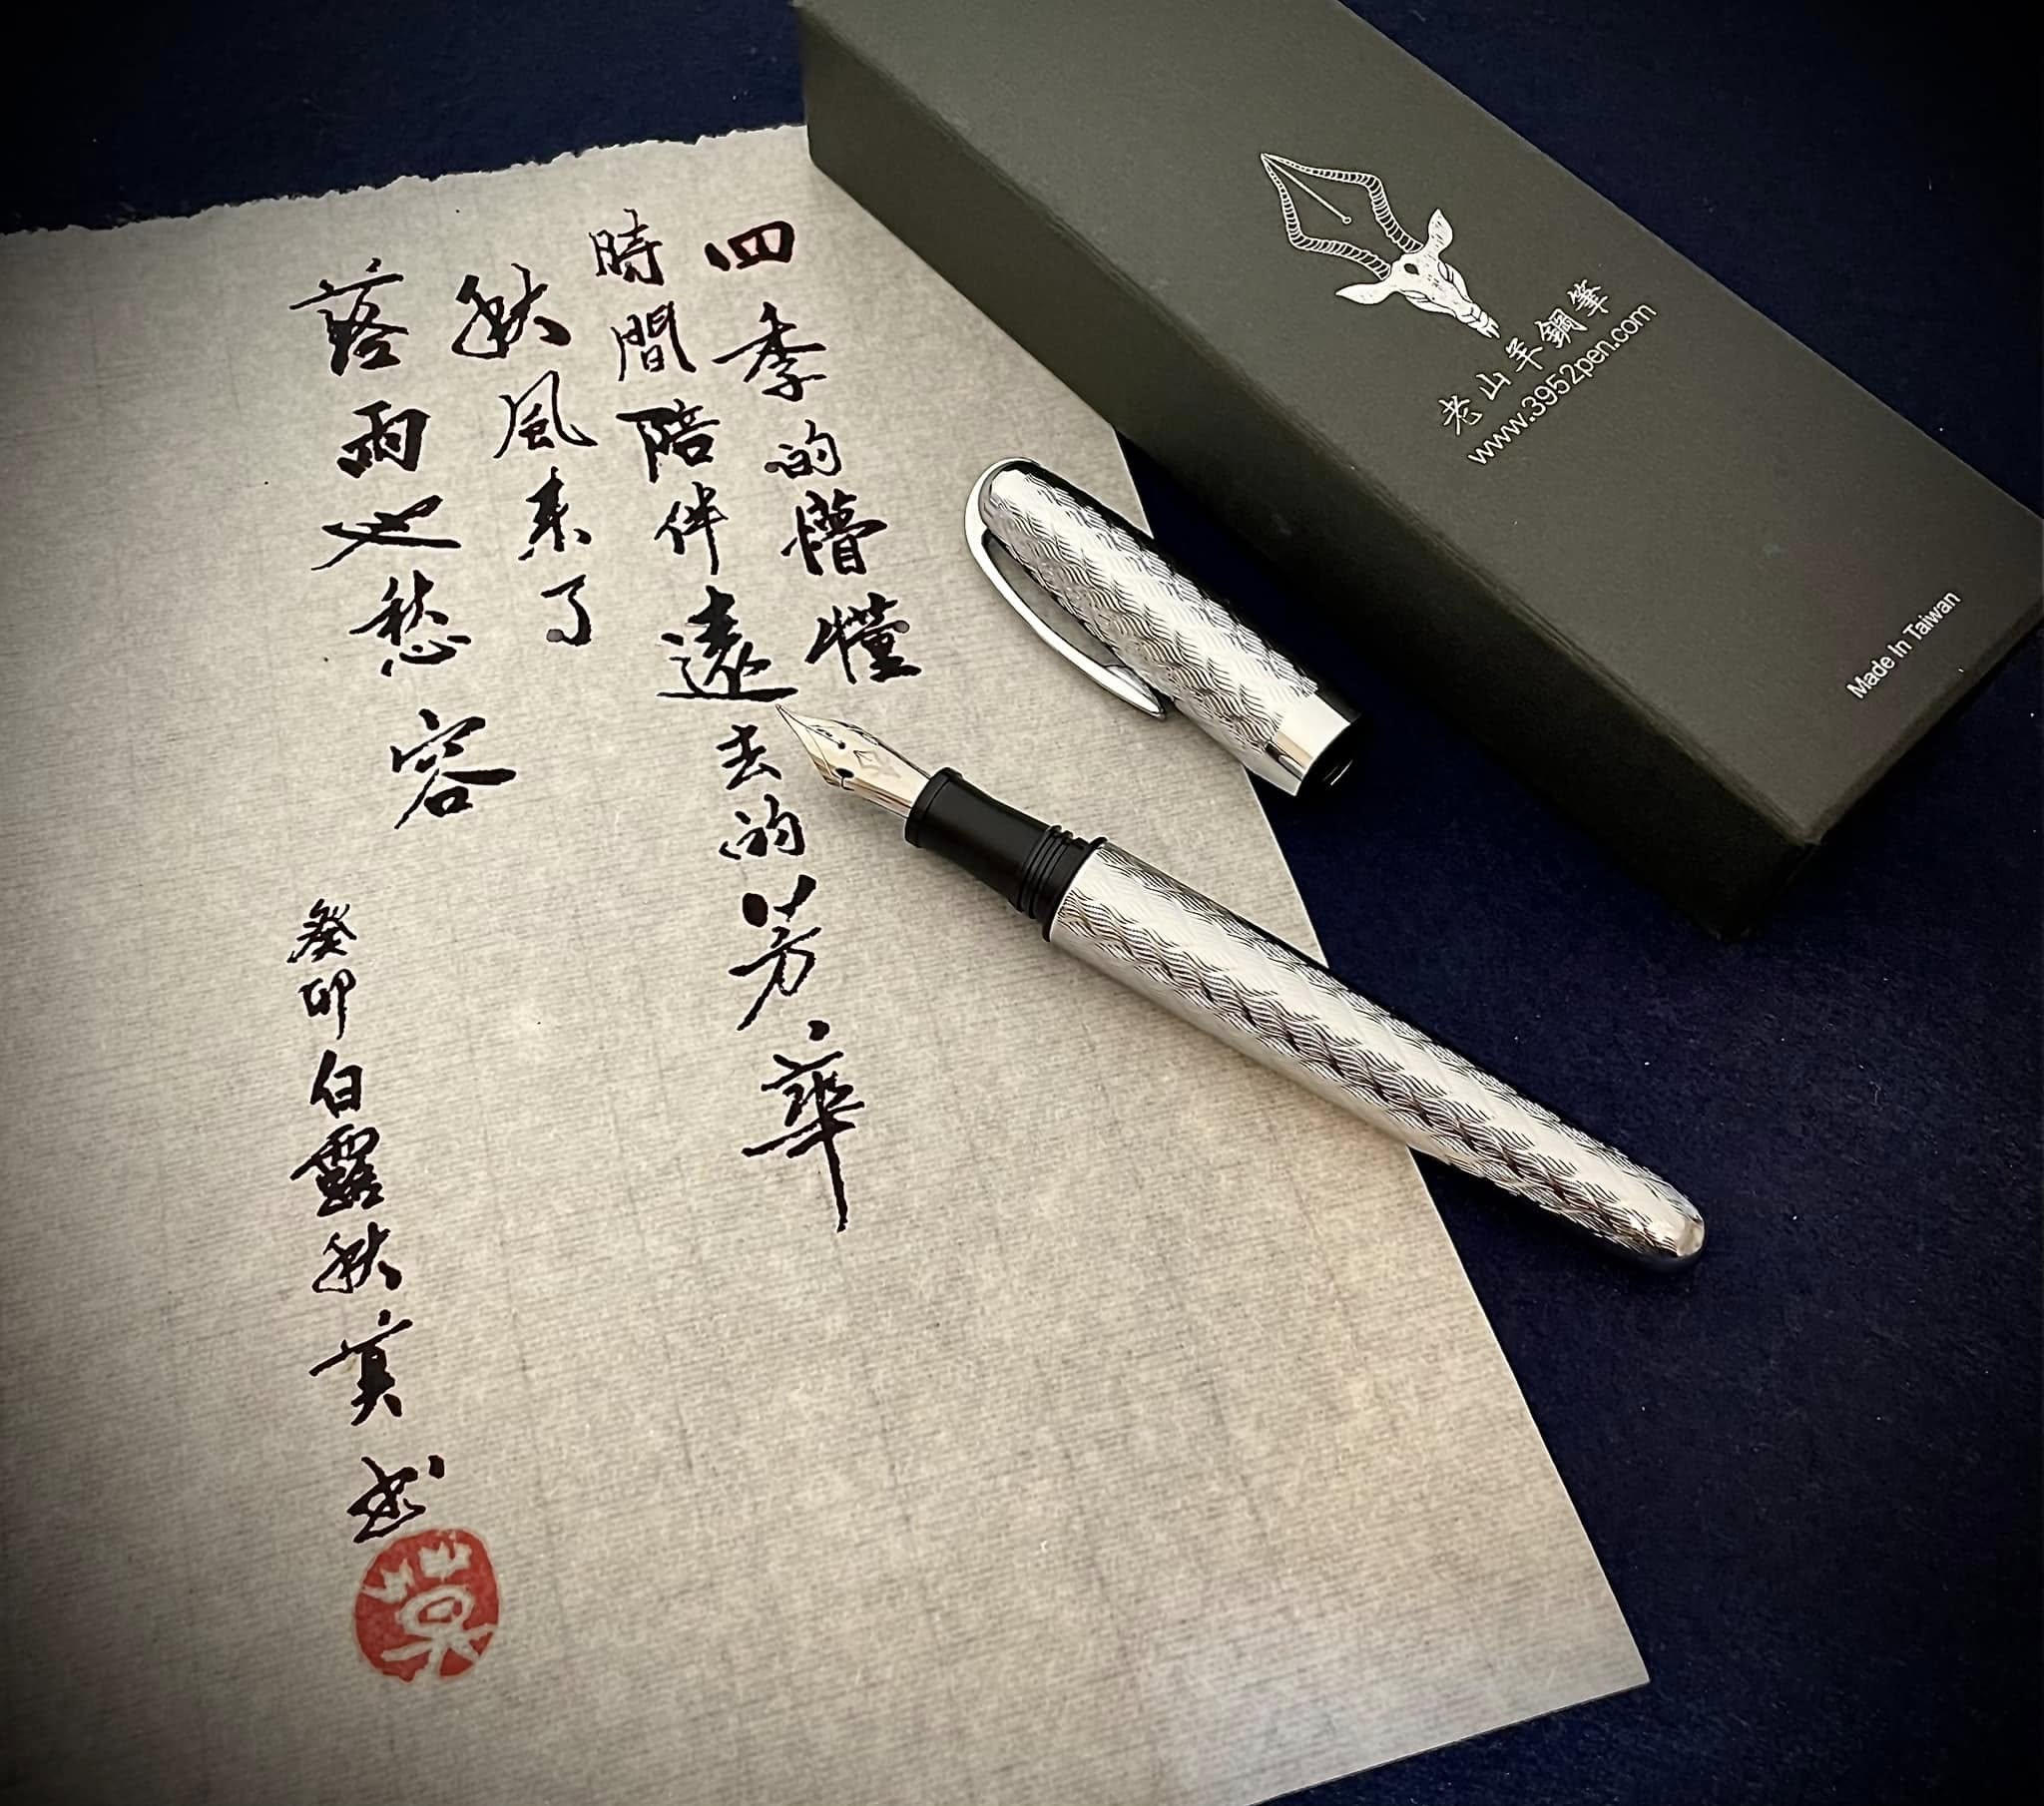 四季的懵懂
時間陪伴遠去的芳華
秋風來了
落雨也愁容
癸卯白露秋
老山羊鋼筆
www.3952pen.com
Made In Taiwan